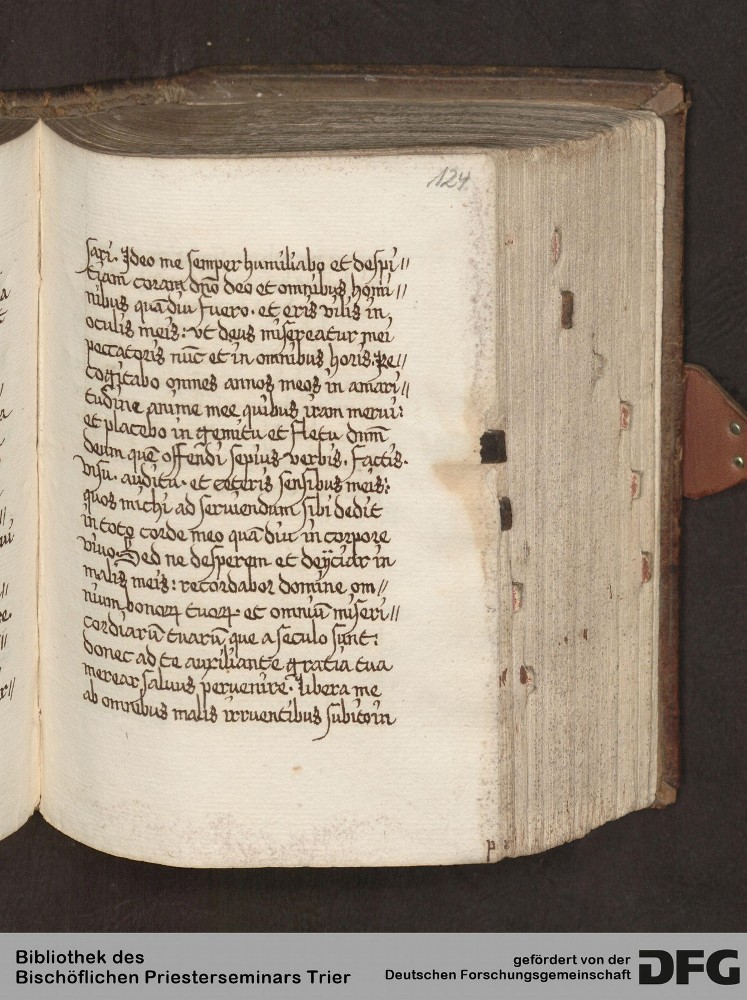 124
sari. Ideo me semper humiliabo et despi//
tiam coram dno deo et omnibus homi//
nibus quā diu fuero. et eris vilis in
oculis meis: vt deus misereatur mei
peccatoris nūc et in omnibus horis. Re//
cogitabo omnes annos meos in amari//
tudine anime mee quibus iram merui:
et placebo in gemitu et fletu dnm̄
deum quē offendi sepius verbis. factis.
visu. auditu. et ceteris sensibus meis:
quos michi ad seruiendum sibi dedit
in toto corde meo quā diu in corpore
viuo. Sed ne desperem et deÿciar in
malis meis: recordabor domine om//
nium bonoꝝ tuoꝝ. et omniū miseri//
cordiarū tuarū que a seculo sunt:
donec ad te auxiliante gratia tua
merear saluus peruenire. libera me
ab omnibus malis irruentibus subito in
Bibliothek des
Bischöflichen Priesterseminars Trier
gefördert von der
Deutschen Forschungsgemeinschaft
DFG